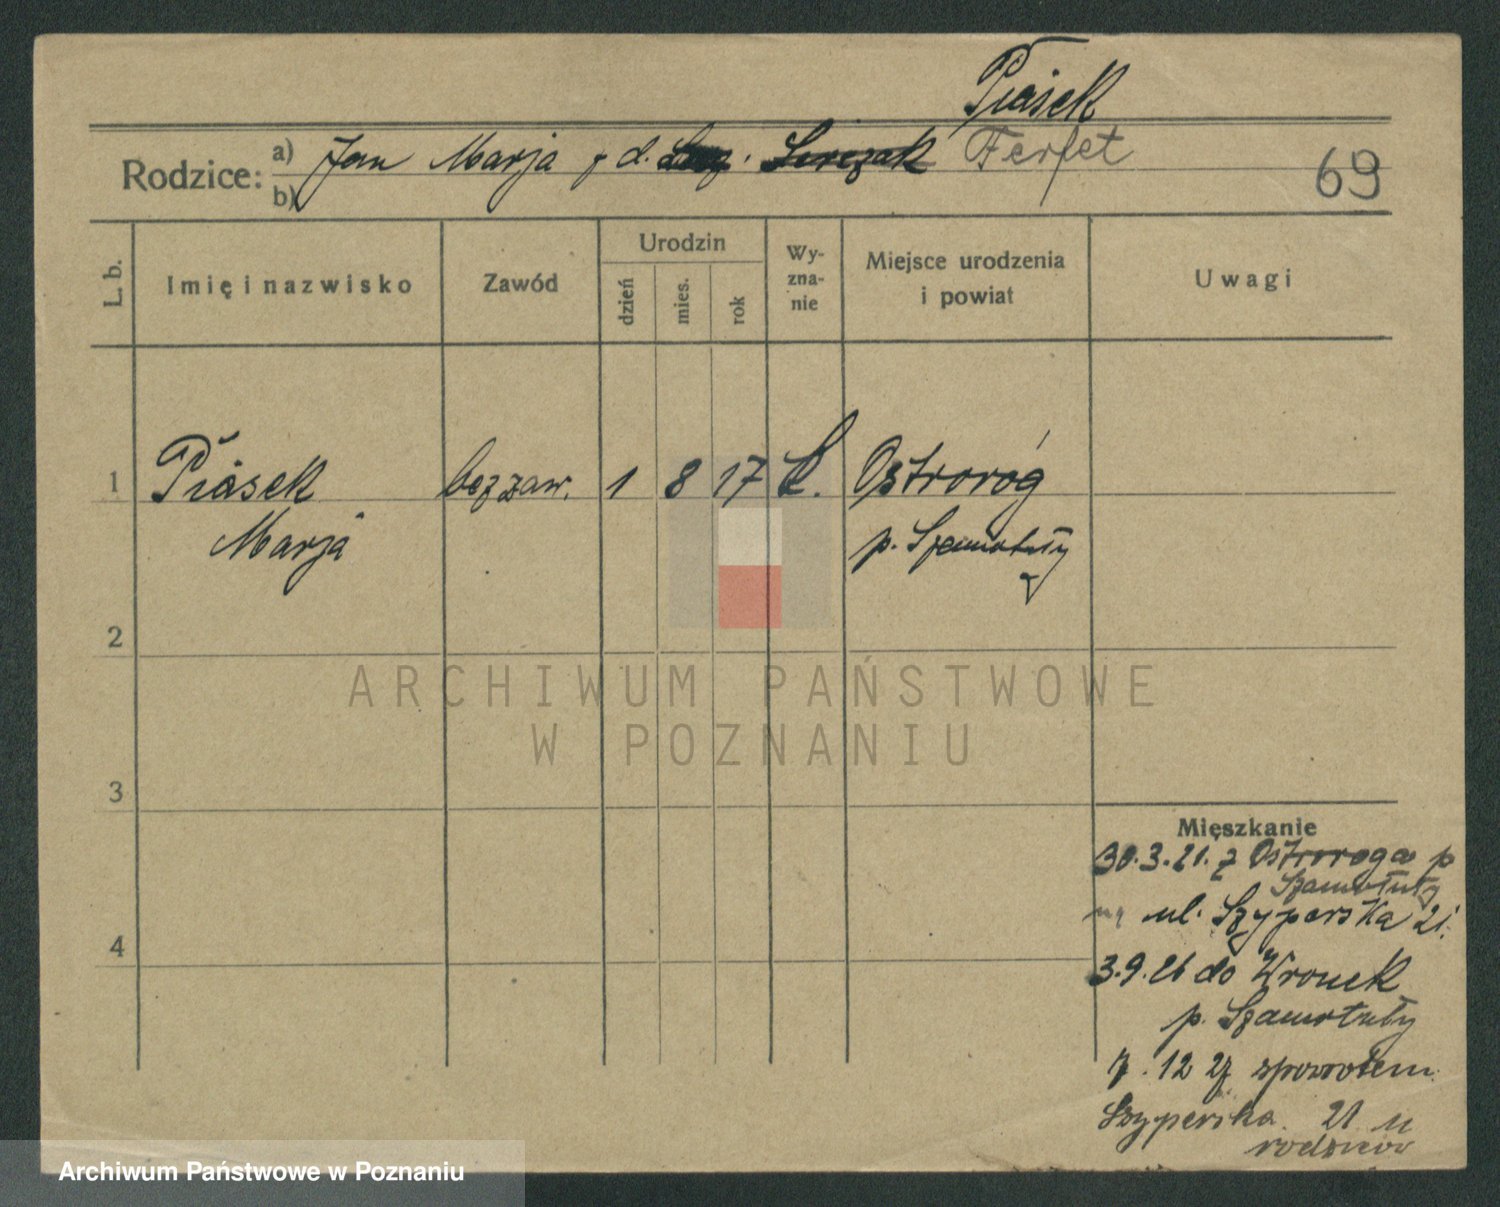 Piasek
Rodzice: a) Jan Marja z d. Ferfet
b)
69
L. b.
Imię i nazwisko
Zawód
Urodzin
dzień
mies.
rok
Wy-
zna-
nie
Miejsce urodzenia
i powiat
Uwagi
1 Piasek bez zaw. 1 8 17 k. Ostroróg
Marja p. Szamotuły
2
3
4
Mieszkanie
30.3.21. z Ostroroga p
Szamotuły
na ul. Szyperska 21.
3.9.26 do Wronek
p. Szamotuły
7.12 27 spowrotem
Szyperska 21 u
rodziców
ARCHIWUM PAŃSTWOWE
W POZNANIU
Archiwum Państwowe w Poznaniu